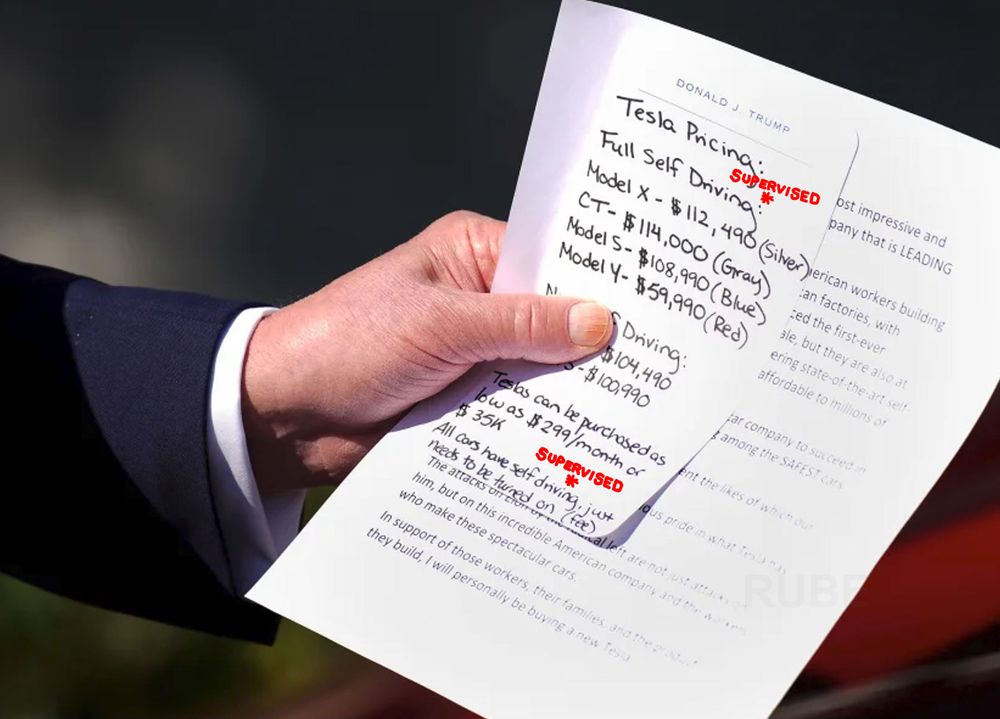 DONALD J. TRUMP
Tesla Pricing:
Full Self Driving:
SUPERVISED
*
Model X - $112,490 (Silver)
CT- $114,000 (Gray)
Model S- $108,990 (Blue)
Model Y- $59,990 (Red)
Driving:
$104,490
-$100,990
Teslas can be purchased as
low as $299/month or
$35K
All cars have self driving, just
SUPERVISED
*
needs to be turned on (fee)
ost impressive and
pany that is LEADING
erican workers building
an factories, with
ced the first-ever
ale, but they are also at
ering state-of-the-art self-
affordable to millions of
ar company to succeed in
among the SAFEST cars
ent the likes of which our
ous pride in what Tesla has
The attacks on by the left are not just attacks on
him, but on this incredible American company and the workers
who make these spectacular cars.
In support of those workers, their families, and the product
they build, I will personally be buying a new Tesla
RUBE